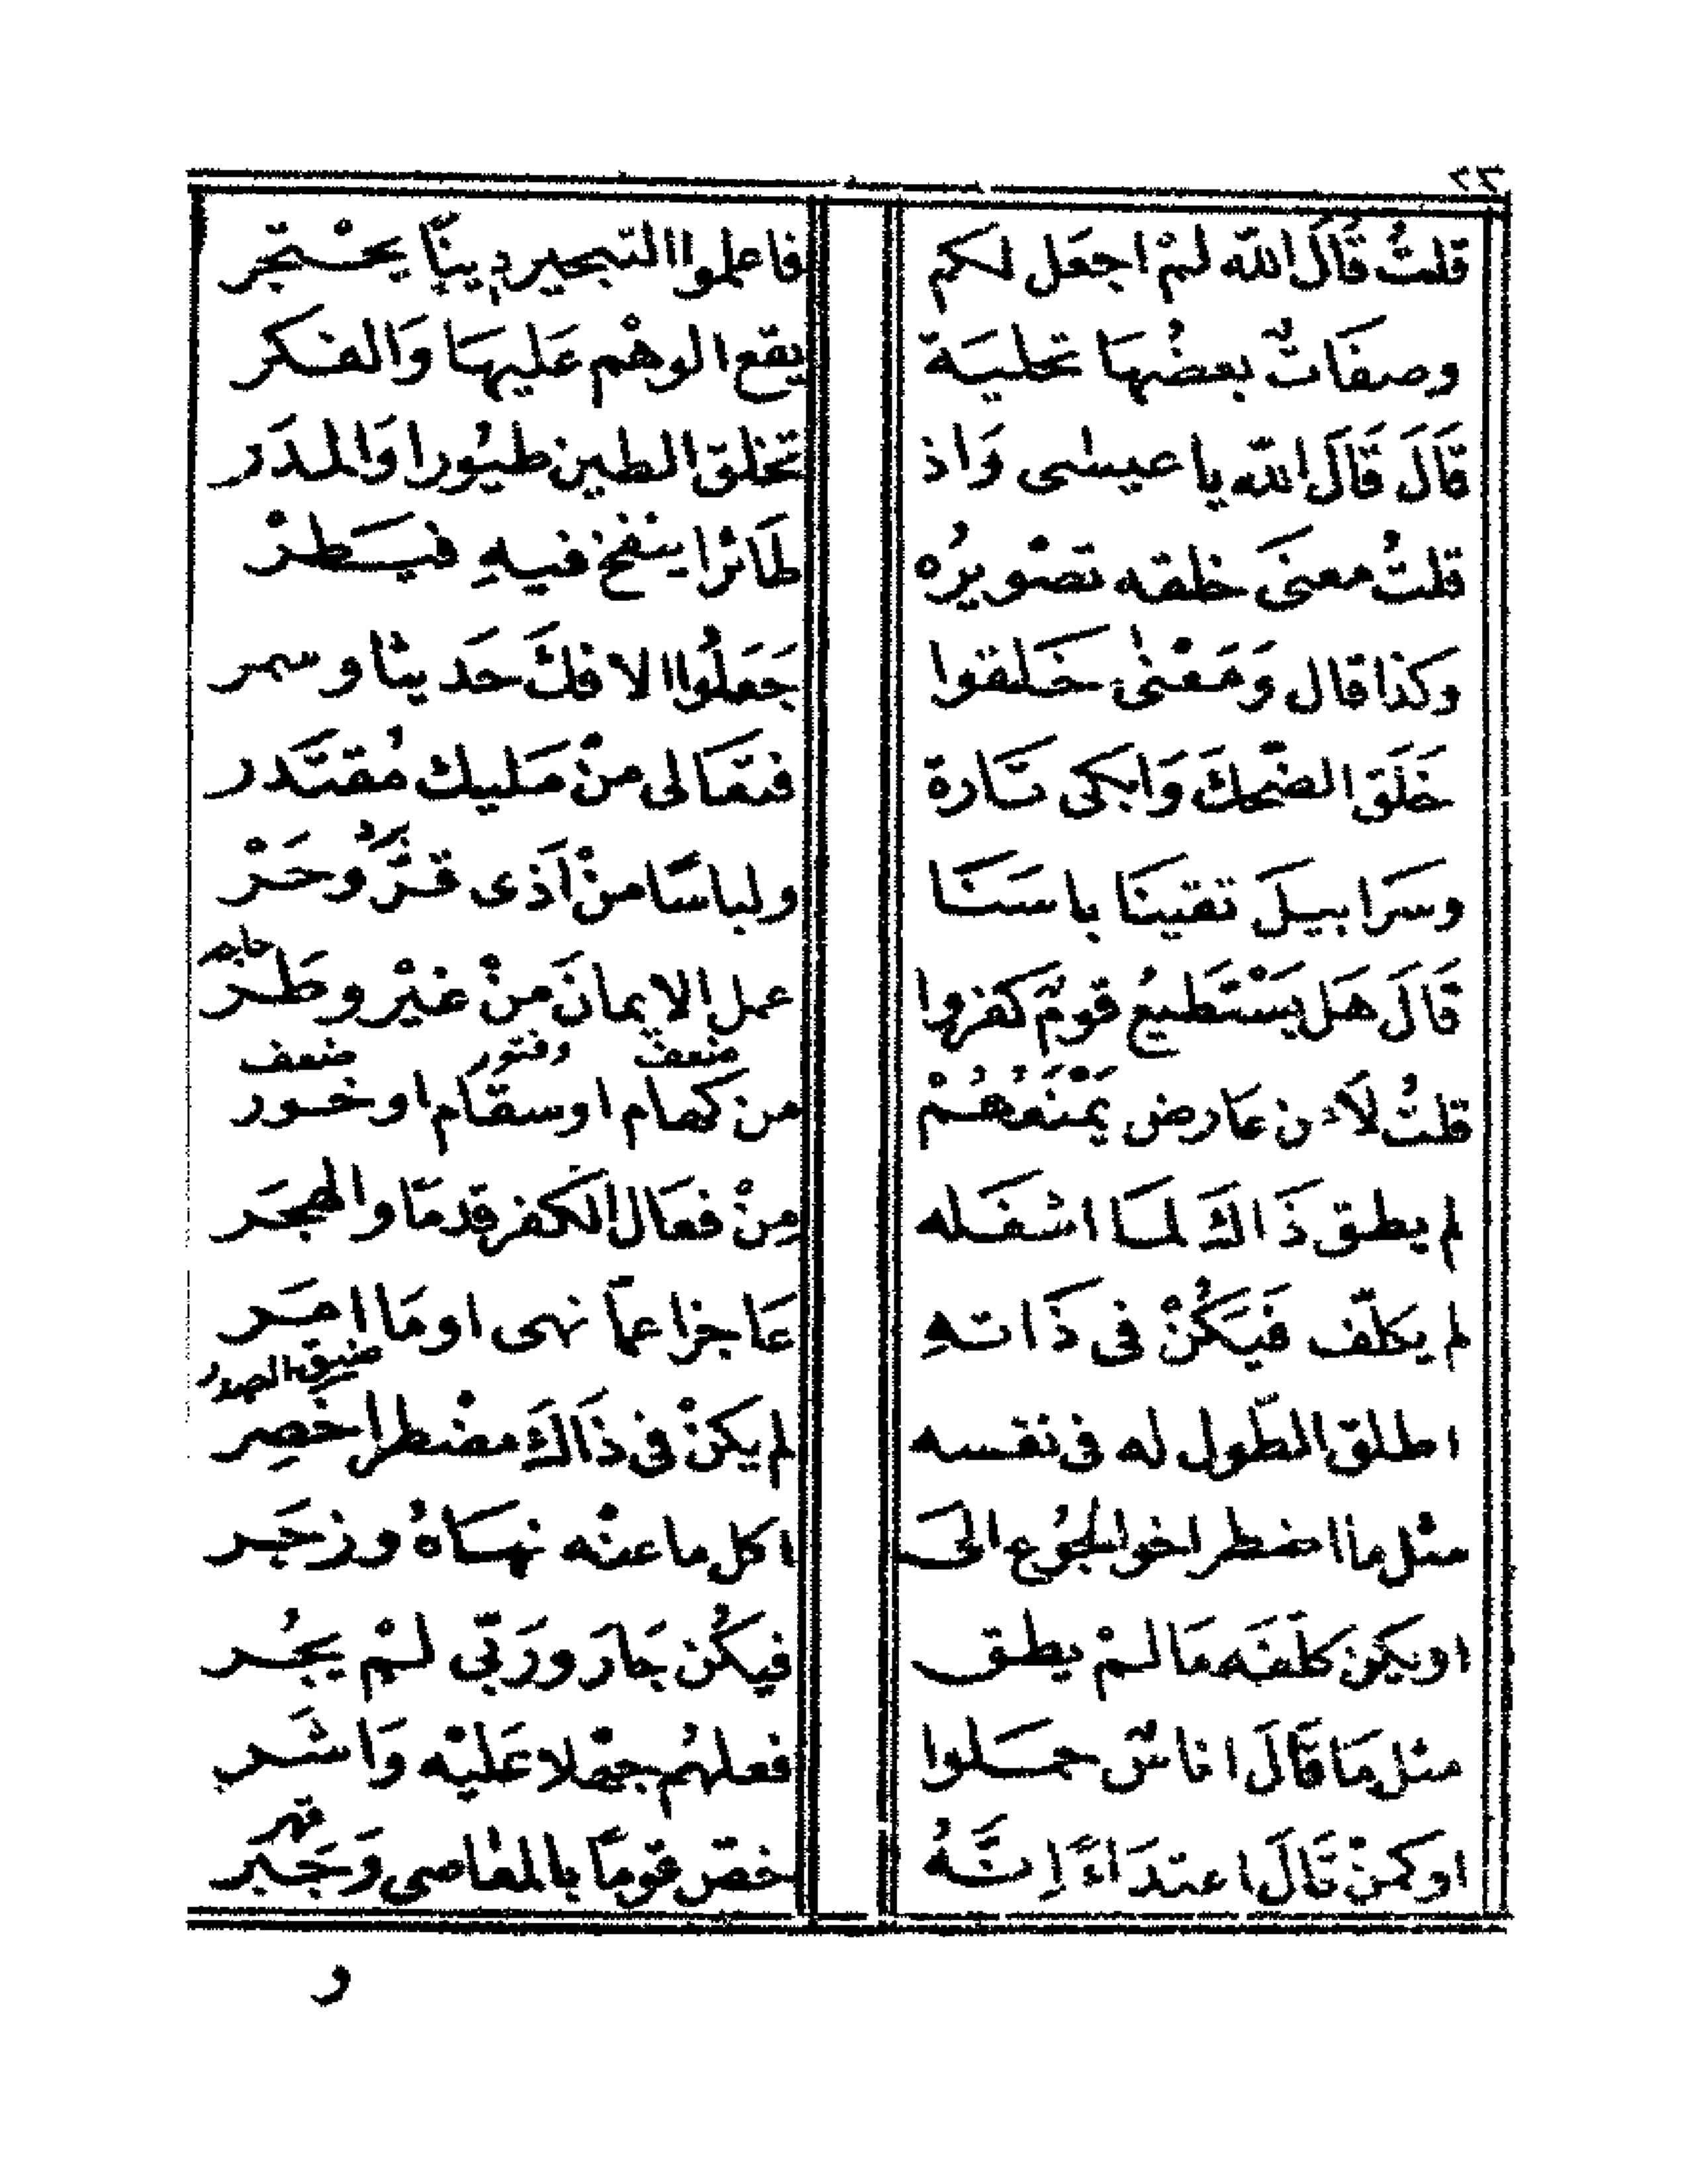 ٢٢
قلتُ قَالَ الله لمْ اجعَل لكم فاعلموا التبحير دينًا يحْتجر
وصفَاتٌ بعضُهَا تحليَة يقع الوهْم عَليهَا وَالفكر
قَالَ قَالَ الله يا عيسى وَاذ تخلق الطين طيُورا وَالمدَر
قلتُ معنَى خلقه تصْويرُه طَائرْا ينفخ فيهِ فيَطرْ
وكذا قال وَمَعْنى خَلقوا جَعَلُوا الافكَ حَديثا وسمر
خَلَق الضّحكَ وَابكى تَارة فتعَالى منْ مَليك مُقتَدر
وسَرَابيلَ تقينَا باسَنَا ولباسًا منْ اَذى قَرٍّ وحَرْ
برد
قَالَ هَل يَسْتَطيعُ قومٌ كفروا عمل الايمانَ منْ غيْر وطَرْ
حاجه
قلتُ لاَ من عَارض يَمْنَعُهُمْ من كهام او سقَام او خور
ضعف وفتور ضعف
لم يطق ذَاكَ لمَا اشغَله مِنْ فعَال الكفر قدمَا والهجَر
لم يكلّف فَيَكُنْ فى ذَاتهِ عَاجزا عمّا نهى او مَا امَر
اطلق الطّول له فى نفسه لم يكنْ فى ذَاكَ مضْطرا خَصِر
ضيق الصدر
مثل ما اضطر اخو الجُوع الىَ اكل ما عنْه نهَاهُ وزجَر
او يكن كلفَه مَا لمْ يطق فيكُن جَارَ ورَبّى لمْ يجُر
مثل مَا قَالَ اناسٌ حملوا فعلهُم جهْلا عَليْه وَاشَر
او كمنْ قَالَ اعتدَاءً اِنَّهُ خصّ قومًا بالمعَاصى وَجَبَر
قهر
و